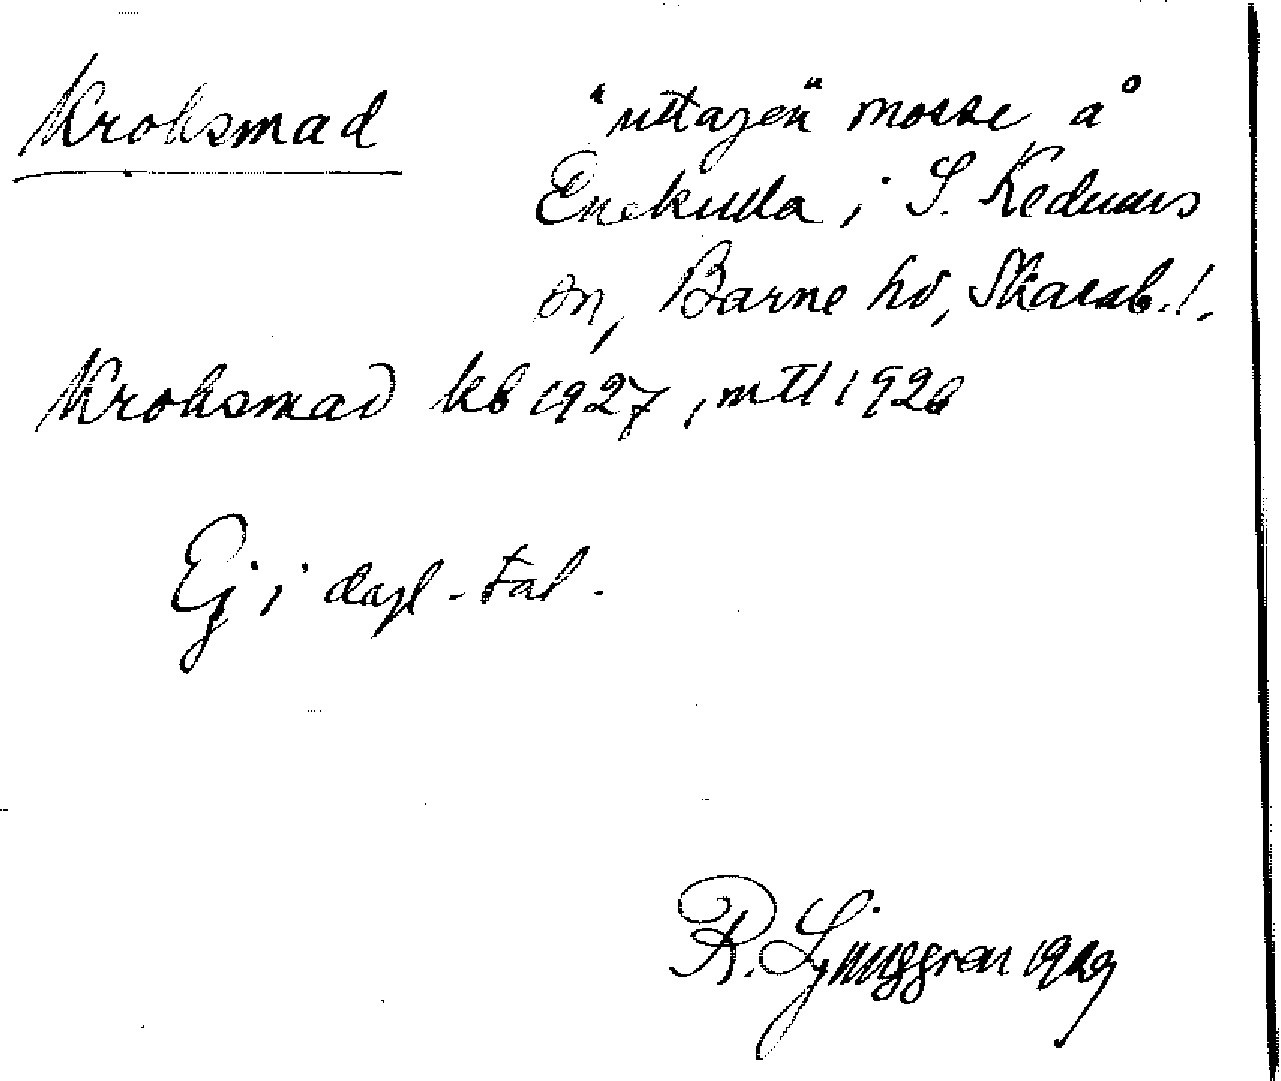 Kroksmad
"uttagen" mosse å
Enekulla i S. Kedums
sn, Barne hd, Skarab. l.
Kroksmad kb 1927, mtl 1926
Ej i dagl. tal.
R. Ljunggren 1929